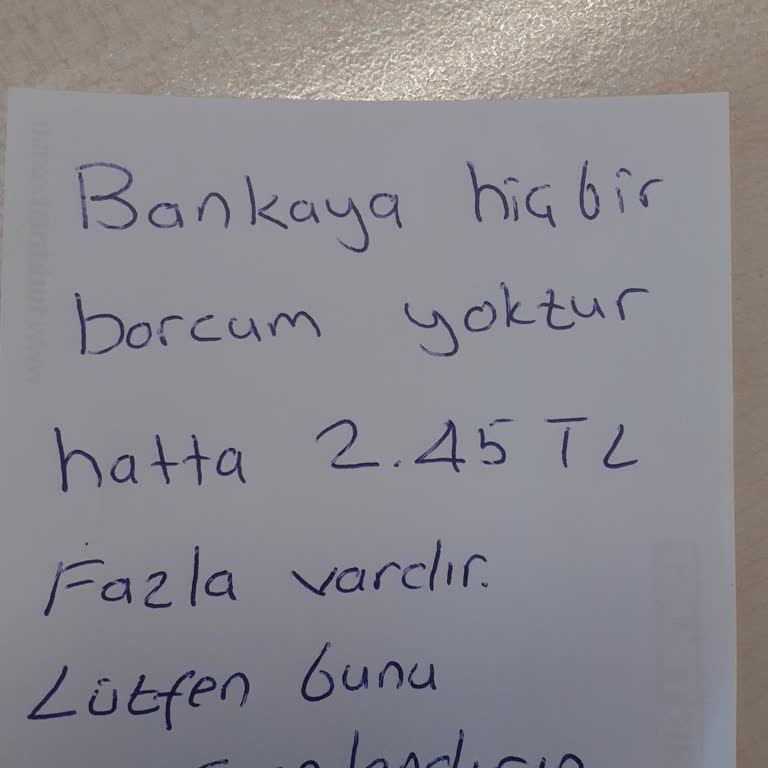 Bankaya hiç bir
borcum yoktur
hatta 2.45 TL
Fazla vardır.
Lütfen bunu